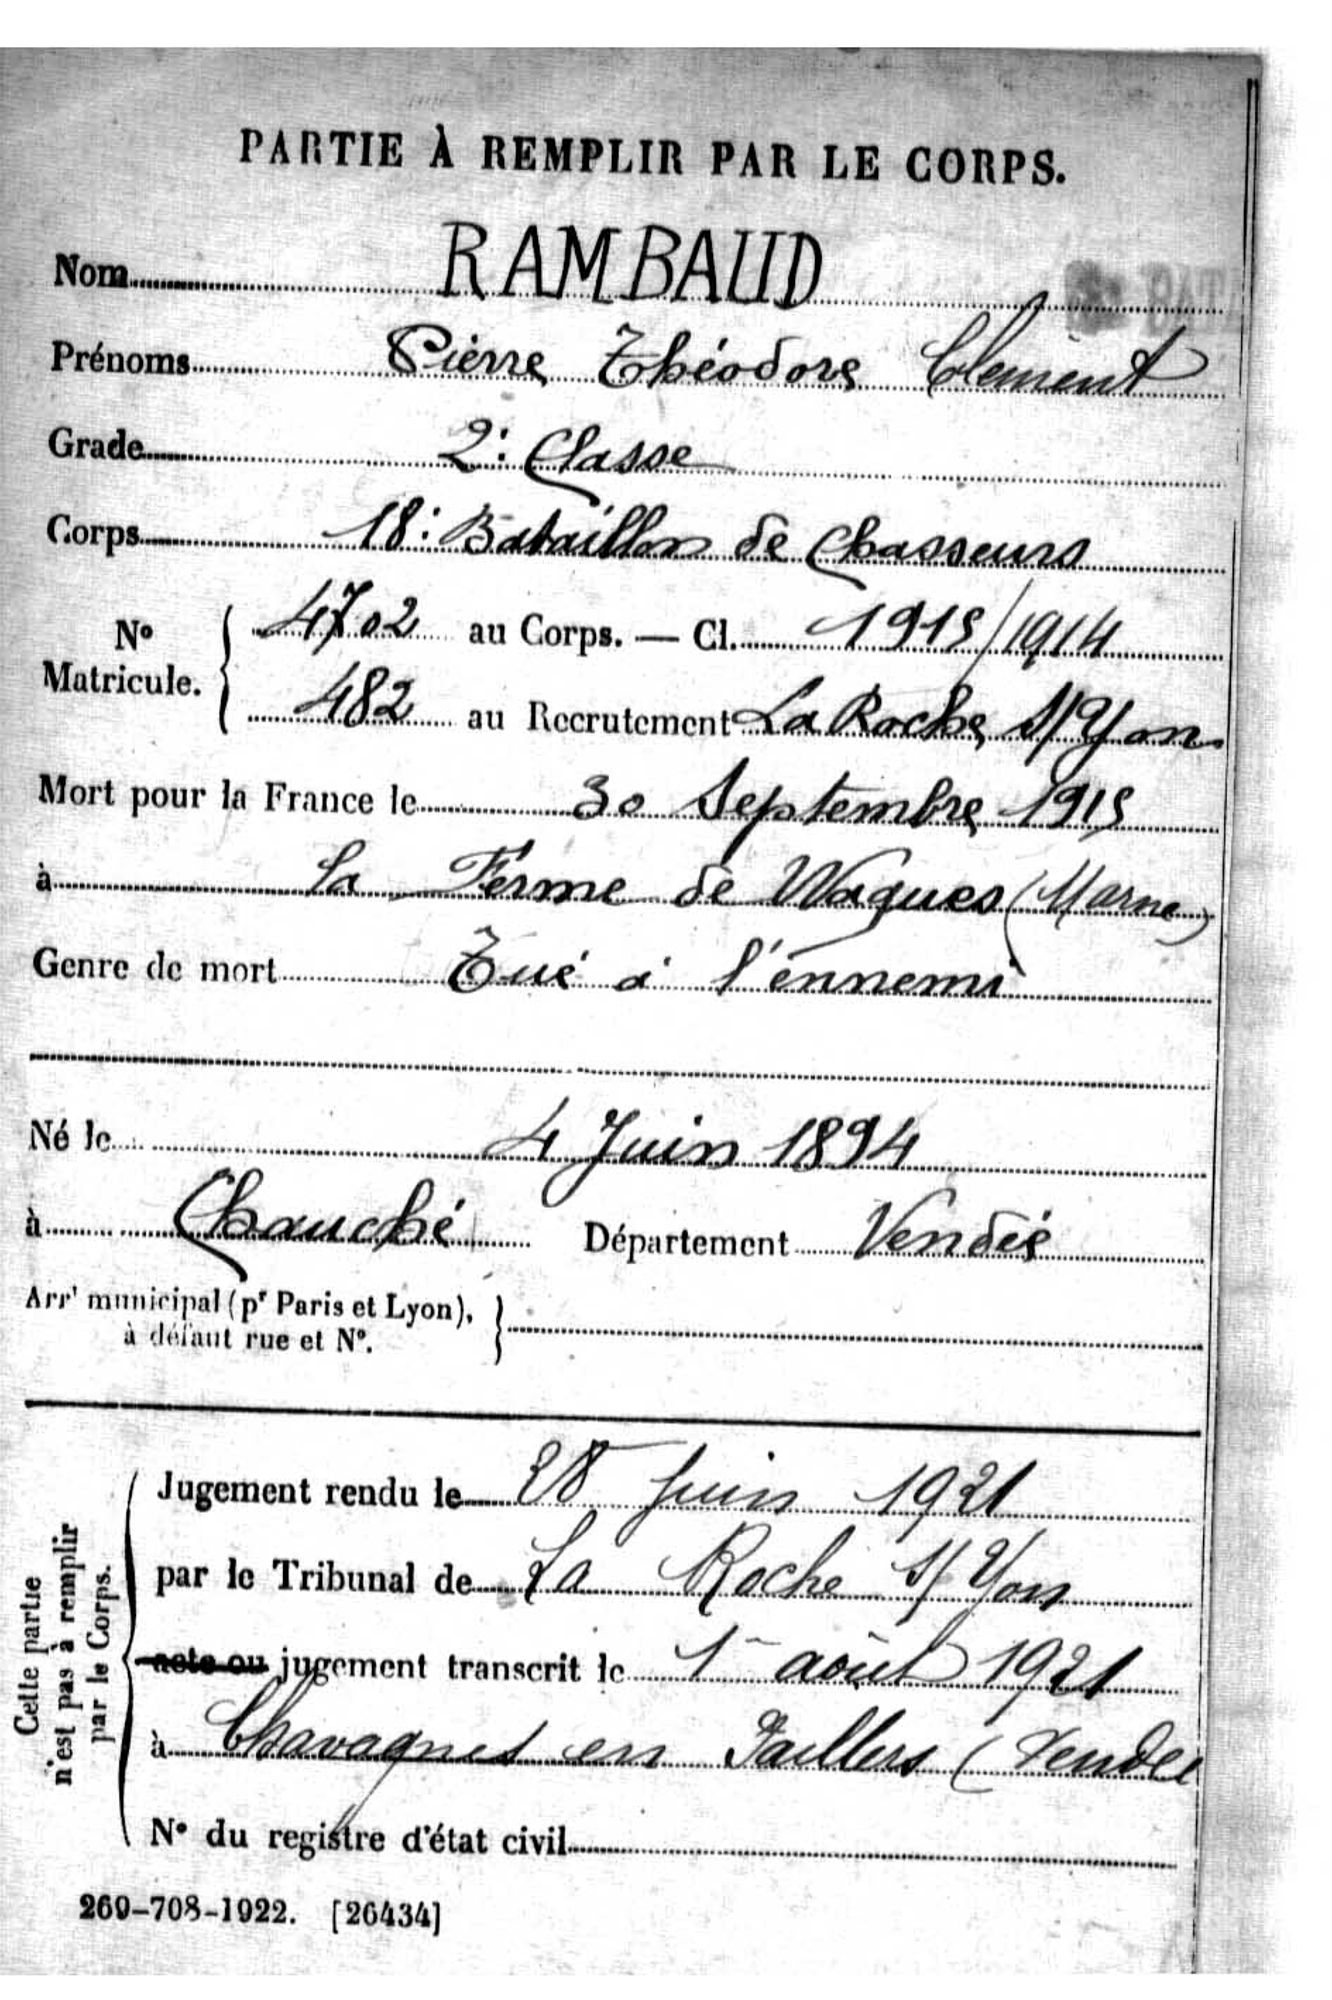 PARTIE À REMPLIR PAR LE CORPS.
Nom RAMBAUD
Prénoms Pierre Théodore Clément
Grade 2: Classe
Corps 18: Bataillon de Chasseurs
N° Matricule. 4702 au Corps. — Cl. 1915/1914
482 au Recrutement La Roche S/Yon
Mort pour la France le 30 Septembre 1915
à La Ferme de Wagues (Marne)
Genre de mort Tué à l'ennemi
Né le 4 Juin 1894
à Chauché Département Vendée
Arrt municipal (pr Paris et Lyon),
à défaut rue et N°.
Cette partie
n'est pas à remplir
par le Corps.
Jugement rendu le 28 Juin 1921
par le Tribunal de La Roche S/Yon
acte ou jugement transcrit le 1er août 1921
à Chavagnes en Paillers (Vendée
N° du registre d'état civil
269-708-1922. [26434]